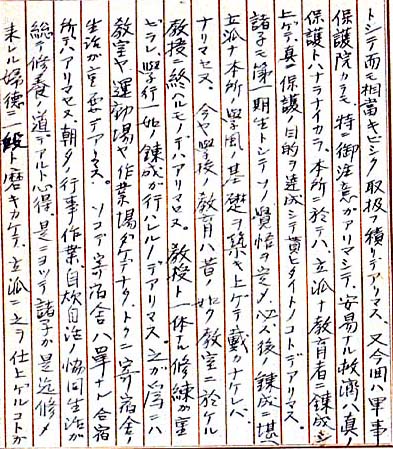 トシテ而モ相當キビシク取扱フ積リデアリマス、又今回ハ軍事
保護院カラモ特ニ御注意ガアリマシテ、安易ナル救濟ハ眞ノ
保護トハナラナイカラ、本所ニ於テハ立派ナ教育者ニ錬成シ
上ゲテ、眞ノ保護ノ目的ヲ達成シテ貰ヒタイトノコトデアリマス。
諸子モ第一期生トシテソノ覺悟ヲ定メ、心入後ノ錬成ニ堪ヘ
立派ナ本所ノ學風ノ基礎ヲ築キ上ゲテ戴カナケレバ
ナリマセヌ。今ヤ學校ノ教育ハ昔ノ如ク教室ニ於ケル
教授ニ終ヘルモノデハアリマセヌ。教授ト一体ナル修練ガ重
ゼラレ學行一如ノ錬成ガ行ハレルノデアリマス。之ガ為ニハ
教室ヤ運動場ヤ作業場ダケデナク、トクニ寄宿舎ノ
生活ガ重要デアリマス。ソコデ寄宿舎ハ單ナル合宿
所デハアリマセヌ、朝夕ノ行事、作業、自炊自治ノ協同生活ガ
総テ修養ノ道デアルト心得、是ニヨッテ諸子ガ是迄修メ
来レル婦德ニ一段ト磨キカケテ、立派ニ之ヲ仕上ゲルコトガ